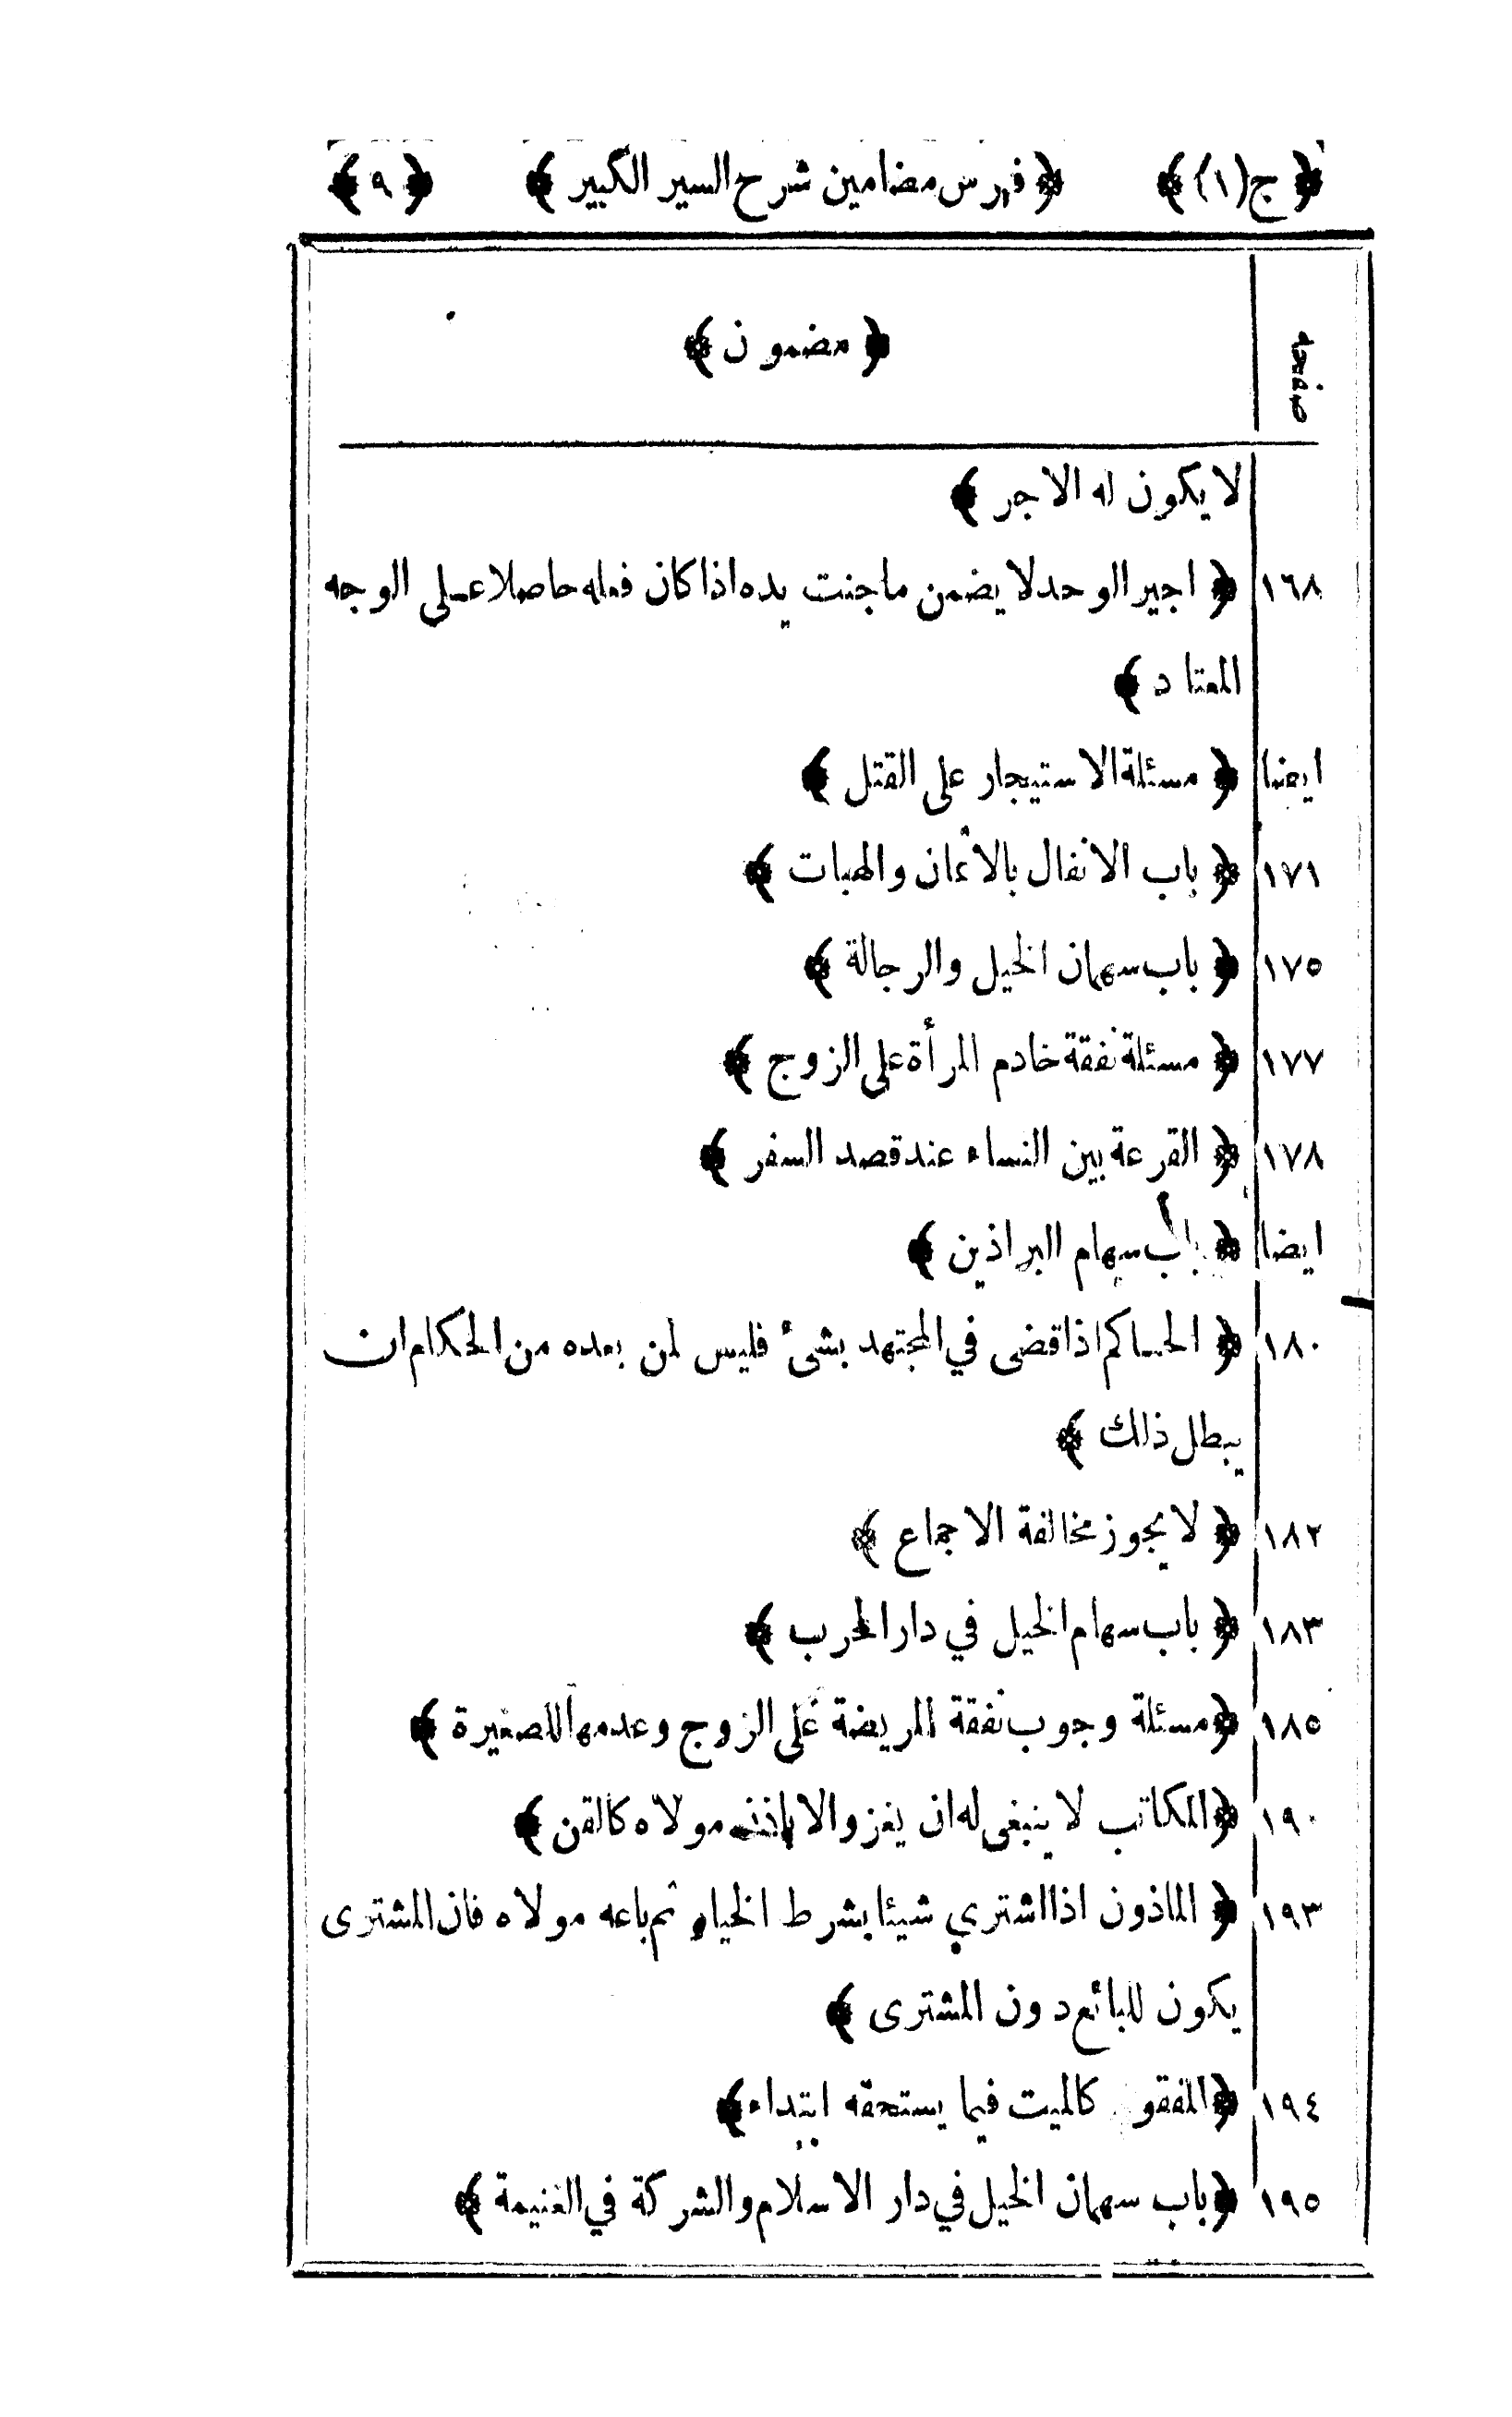 ﴿ ج (١) ﴾ ﴿ فهرس مضامين شرح السير الكبير ﴾ ﴿ ٩ ﴾
صفحه ﴿ مضمون ﴾
لا يكون له الاجر ﴾
١٦٨ ﴿ اجير الوحد لا يضمن ما جنت يده اذا كان فعله حاصلا على الوجه
المعتاد ﴾
ايضا ﴿ مسئلة الاستيجار على القتل ﴾
١٧١ ﴿ باب الانفال بالاثمان والهبات ﴾
١٧٥ ﴿ باب سهمان الخيل والرجالة ﴾
١٧٧ ﴿ مسئلة نفقة خادم المرأة على الزوج ﴾
١٧٨ ﴿ القرعة بين النساء عند قصد السفر ﴾
ايضا ﴿ باب سهام البراذين ﴾
١٨٠ ﴿ الحاكم اذا قضى في المجتهد بشئ فليس لمن بعده من الحكام ان
يبطل ذلك ﴾
١٨٢ ﴿ لا يجوز مخالفة الاجماع ﴾
١٨٣ ﴿ باب سهام الخيل في دار الحرب ﴾
١٨٥ ﴿ مسئلة وجوب نفقة المريضة على الزوج وعدمها للصغيرة ﴾
١٩٠ ﴿ المكاتب لا ينبغى له ان يغزو الا باذن مولاه كالقن ﴾
١٩٣ ﴿ الماذون اذا اشتري شيئا بشرط الخيار ثم باعه مولاه فان المشترى
يكون للبائع دون المشترى ﴾
١٩٤ ﴿ المفقو كالميت فيما يستحقه ابتداء ﴾
١٩٥ ﴿ باب سهمان الخيل في دار الاسلام والشركة في الغنيمة ﴾